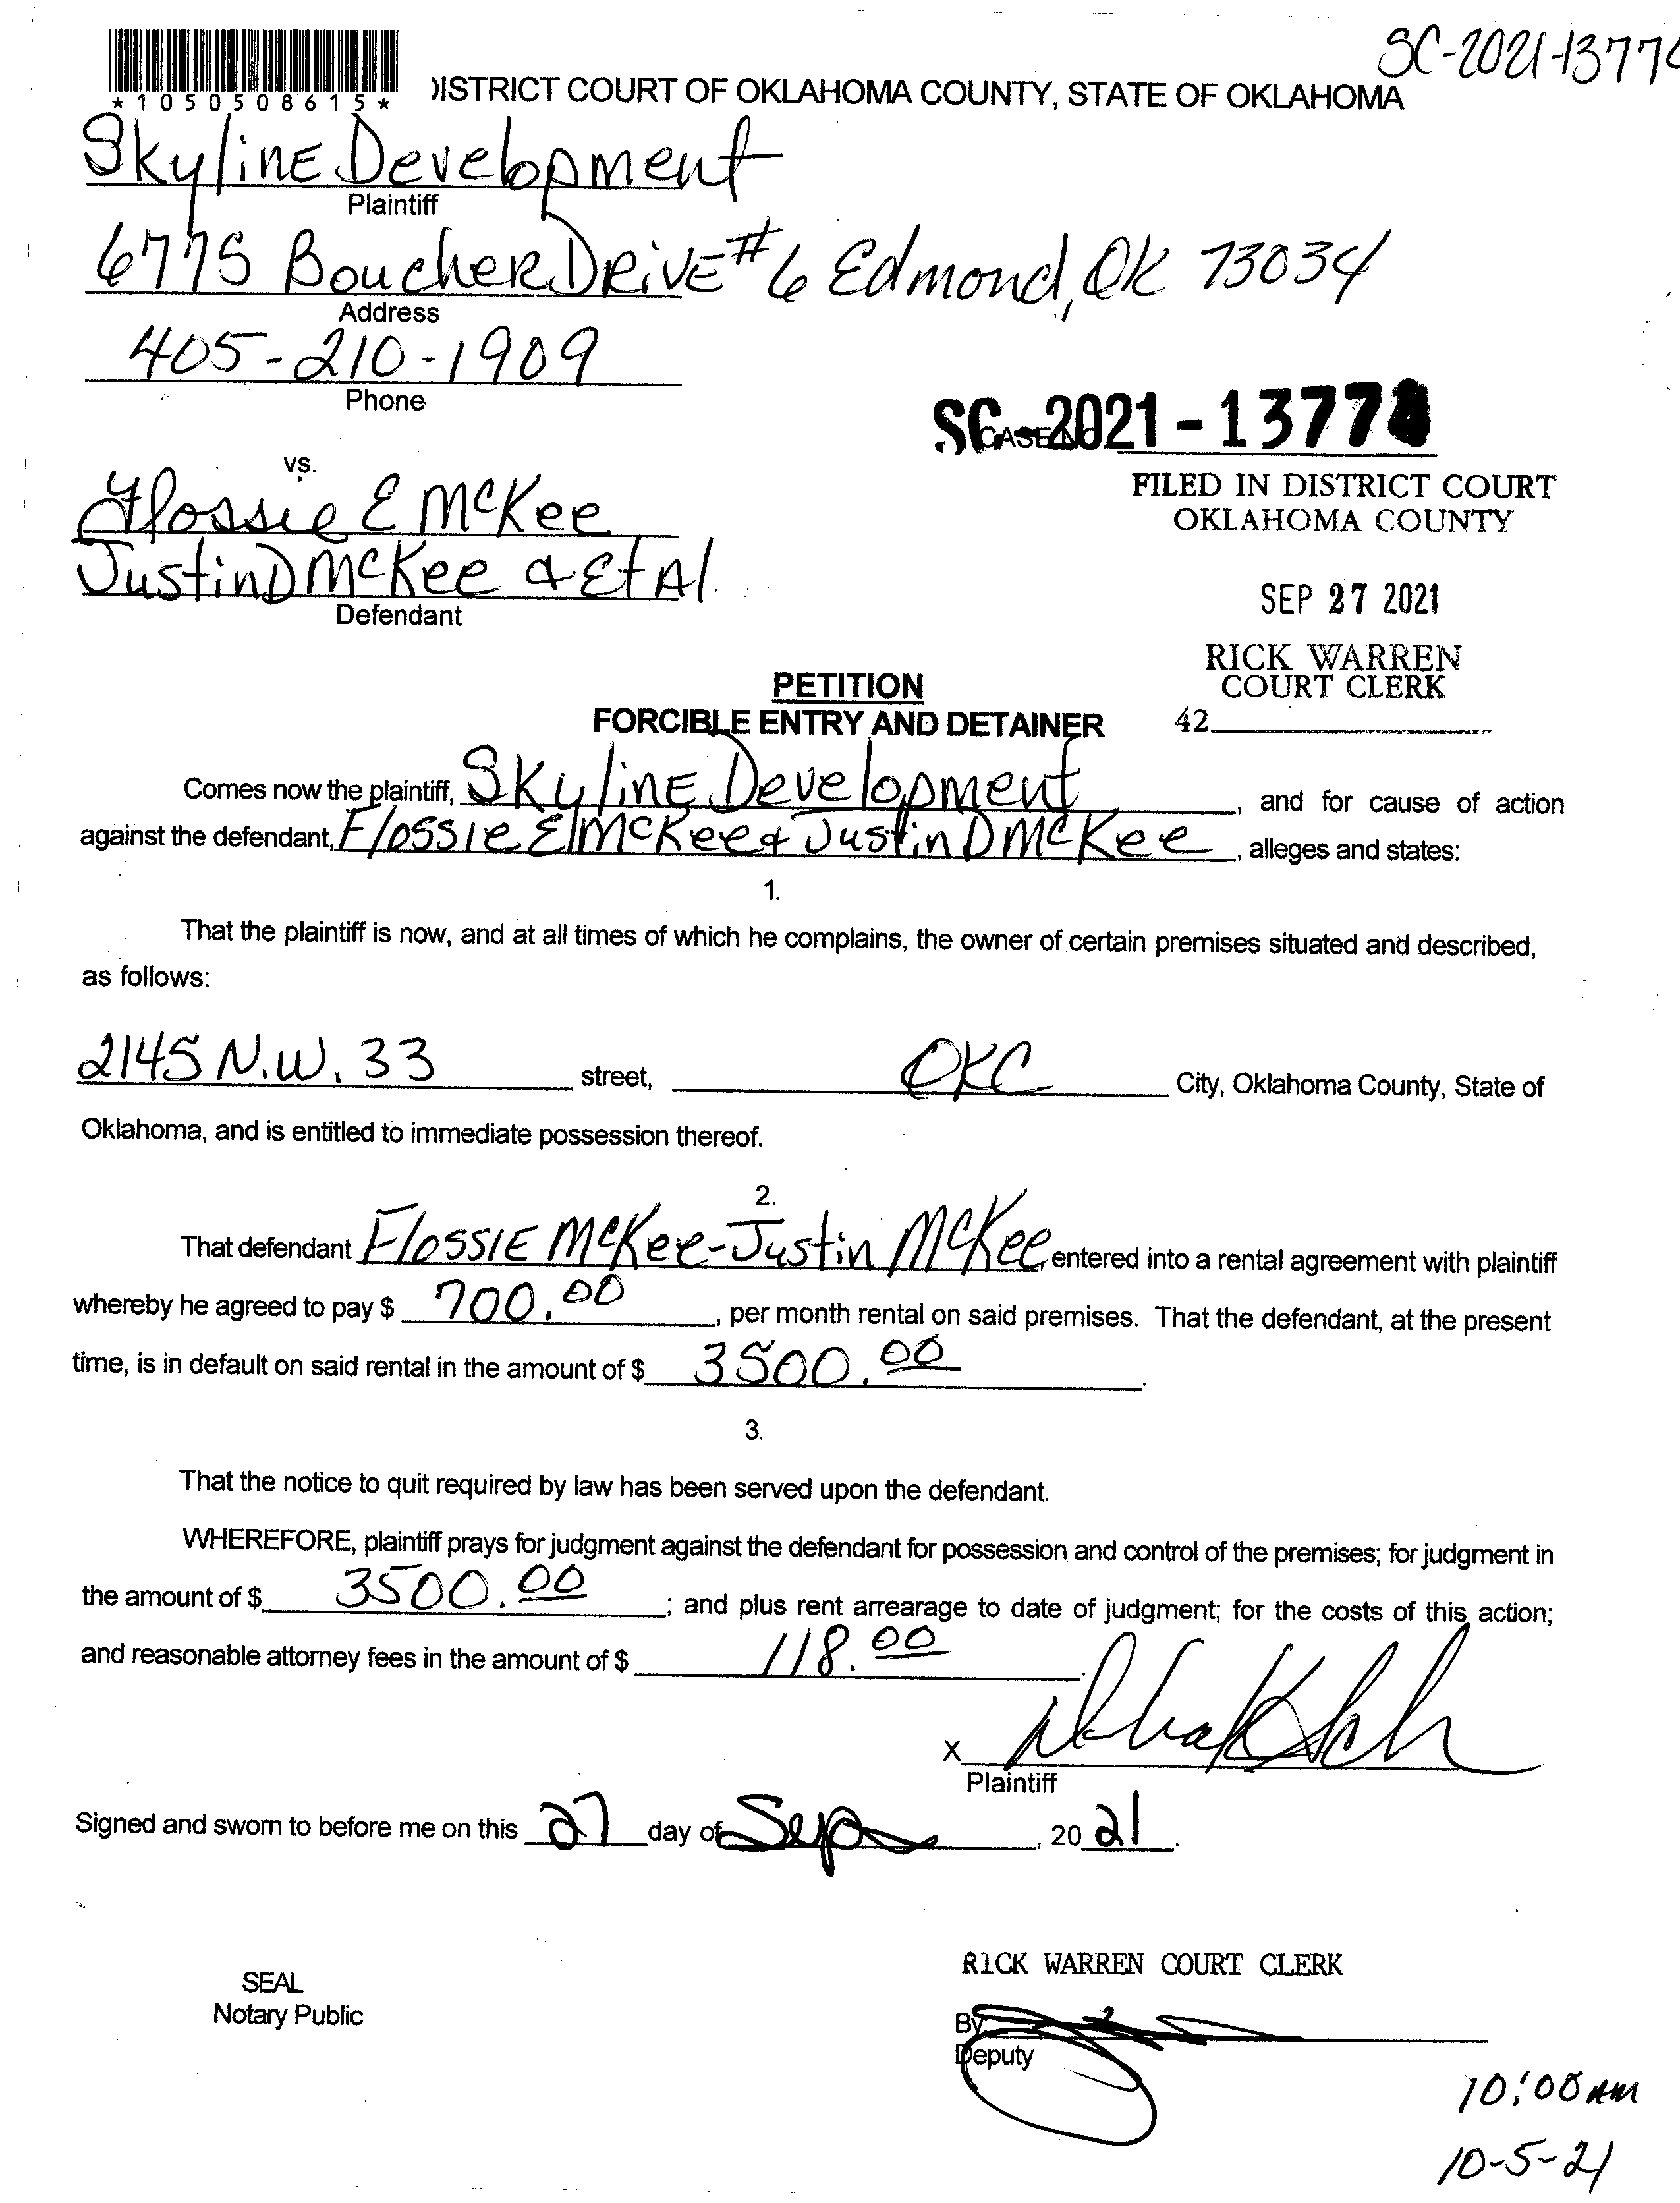 SC-2021-1377
*1050508615*
DISTRICT COURT OF OKLAHOMA COUNTY, STATE OF OKLAHOMA
Skyline Development
Plaintiff
6775 Boucher Drive #6 Edmond, OK 73034
Address
405-210-1909
Phone
SC-2021-1377
CASE NO
vs.
FILED IN DISTRICT COURT
OKLAHOMA COUNTY
Flossie E McKee
Justin D McKee & Et Al.
Defendant
SEP 27 2021
RICK WARREN
COURT CLERK
42
PETITION
FORCIBLE ENTRY AND DETAINER
Comes now the plaintiff, Skyline Development, and for cause of action
against the defendant, Flossie E McKee & Justin D McKee, alleges and states:
1.
That the plaintiff is now, and at all times of which he complains, the owner of certain premises situated and described,
as follows:
2145 N.W. 33 street, OKC City, Oklahoma County, State of
Oklahoma, and is entitled to immediate possession thereof.
2.
That defendant Flossie McKee-Justin McKee, entered into a rental agreement with plaintiff
whereby he agreed to pay $ 700.00, per month rental on said premises. That the defendant, at the present
time, is in default on said rental in the amount of $ 3500.00.
3.
That the notice to quit required by law has been served upon the defendant.
WHEREFORE, plaintiff prays for judgment against the defendant for possession and control of the premises; for judgment in
the amount of $ 3500.00; and plus rent arrearage to date of judgment; for the costs of this action;
and reasonable attorney fees in the amount of $ 118.00.
X
Plaintiff
Signed and sworn to before me on this 27 day of Sep, 2021.
SEAL
Notary Public
RICK WARREN COURT CLERK
By
Deputy
10:00 AM
10-5-21